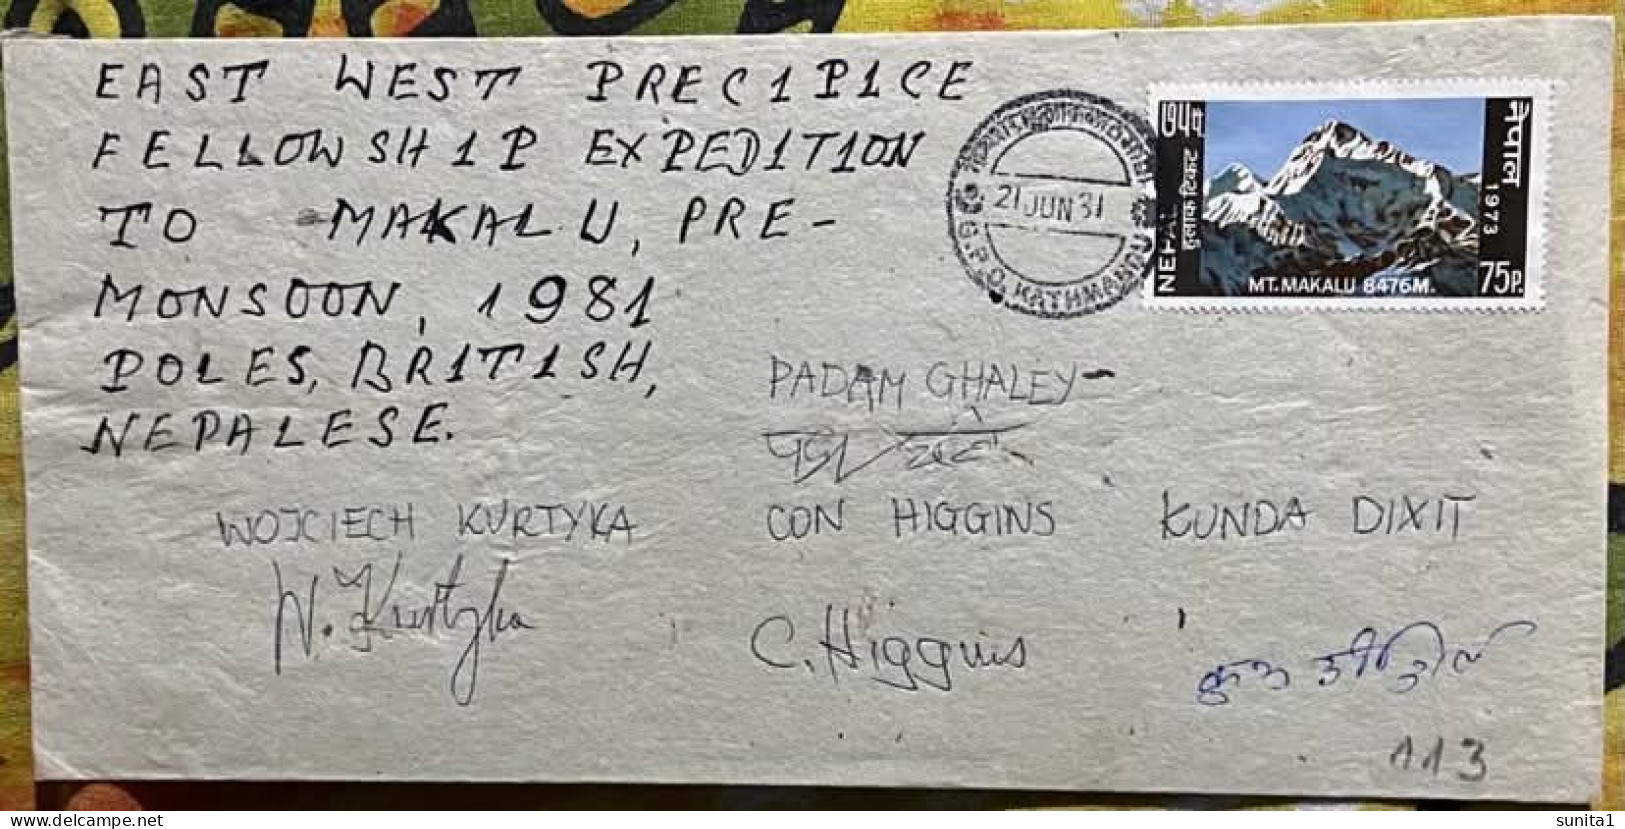 EAST WEST PRECIPICE
FELLOWSHIP EXPEDITION
TO MAKALU, PRE-
MONSOON, 1981
POLES, BRITISH,
NEPALESE.
G.P.O. KATHMANDU
21 JUN 31
७५ प
हुलाक टिकट
NEPAL
नेपाल
1973
MT. MAKALU 8476M.
75P.
PADAM GHALEY-
WOJCIECH KURTYKA
CON HIGGINS
KUNDA DIXIT
W. Kurtyka
C. Higgins
A13
delcampe.net
sunita1